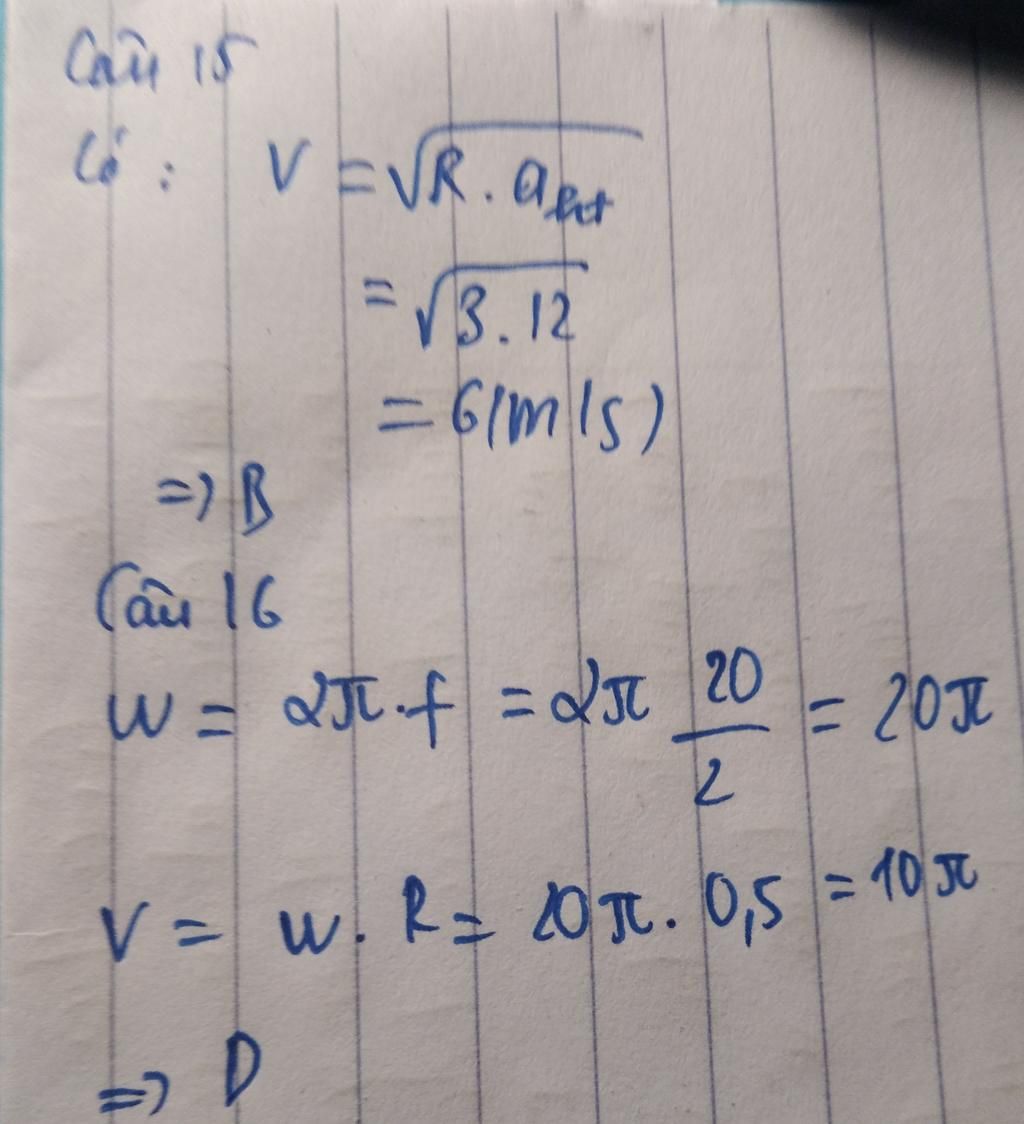 Câu 15
Có : V = √R . aht
= √3 . 12
= 6(m/s)
=> B
Câu 16
W = 2π . f = 2π 20/2 = 20π
V = W . R = 20π . 0,5 = 10π
=> D